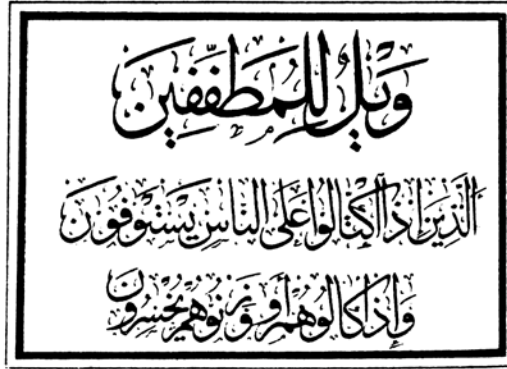 وَيْلٌ لِلْمُطَفِّفِينَ
الَّذِينَ إِذَا اكْتَالُوا عَلَى النَّاسِ يَسْتَوْفُونَ
وَإِذَا كَالُوهُمْ أَوْ وَزَنُوهُمْ يُخْسِرُونَ